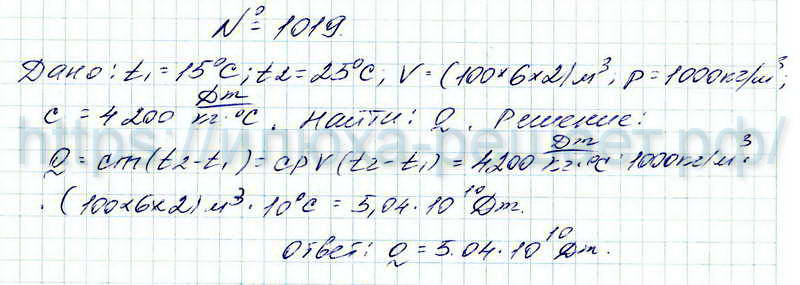 № 1019.
Дано: t₁ = 15°C; t₂ = 25°C, V = (100×6×2) м³; ρ = 1000 кг/м³;
c = 4200 Дж/кг·°C. Найти: Q. Решение:
Q = cm(t₂-t₁) = cρV(t₂-t₁) = 4200 Дж/кг·°C · 1000 кг/м³ ·
· (100×6×2) м³ · 10°C = 5,04·10¹⁰ Дж.
Ответ: Q = 5.04·10¹⁰ Дж.